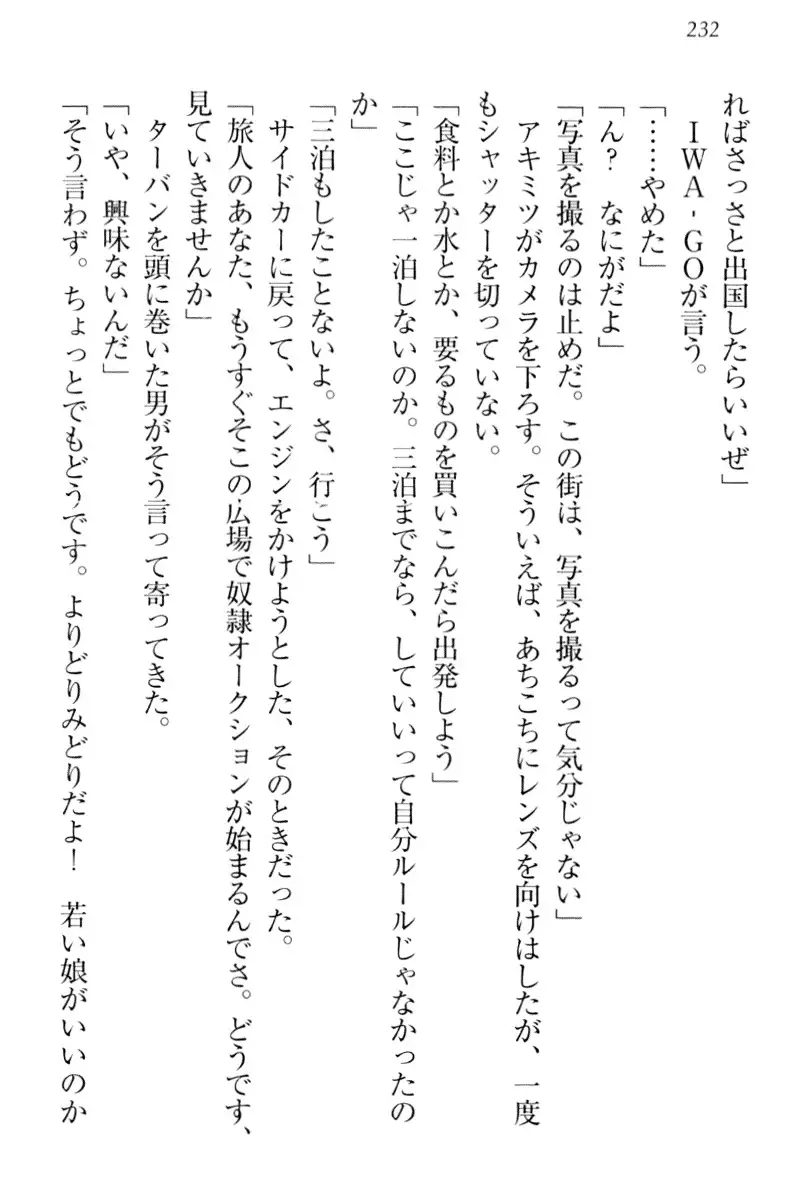 232
ればさっさと出国したらいいぜ」
　ＩＷＡ‐ＧＯが言う。
「……やめた」
「ん？　なにがだよ」
「写真を撮るのは止めだ。この街は、写真を撮るって気分じゃない」
　アキミツがカメラを下ろす。そういえば、あちこちにレンズを向けはしたが、一度
もシャッターを切っていない。
「食料とか水とか、要るものを買いこんだら出発しよう」
「ここじゃ一泊しないのか。三泊までなら、していいって自分ルールじゃなかったの
か」
「三泊もしたことないよ。さ、行こう」
　サイドカーに戻って、エンジンをかけようとした、そのときだった。
「旅人のあなた、もうすぐそこの広場で奴隷オークションが始まるんでさ。どうです、
見ていきませんか」
　ターバンを頭に巻いた男がそう言って寄ってきた。
「いや、興味ないんだ」
「そう言わず。ちょっとでもどうです。よりどりみどりだよ！　若い娘がいいのか